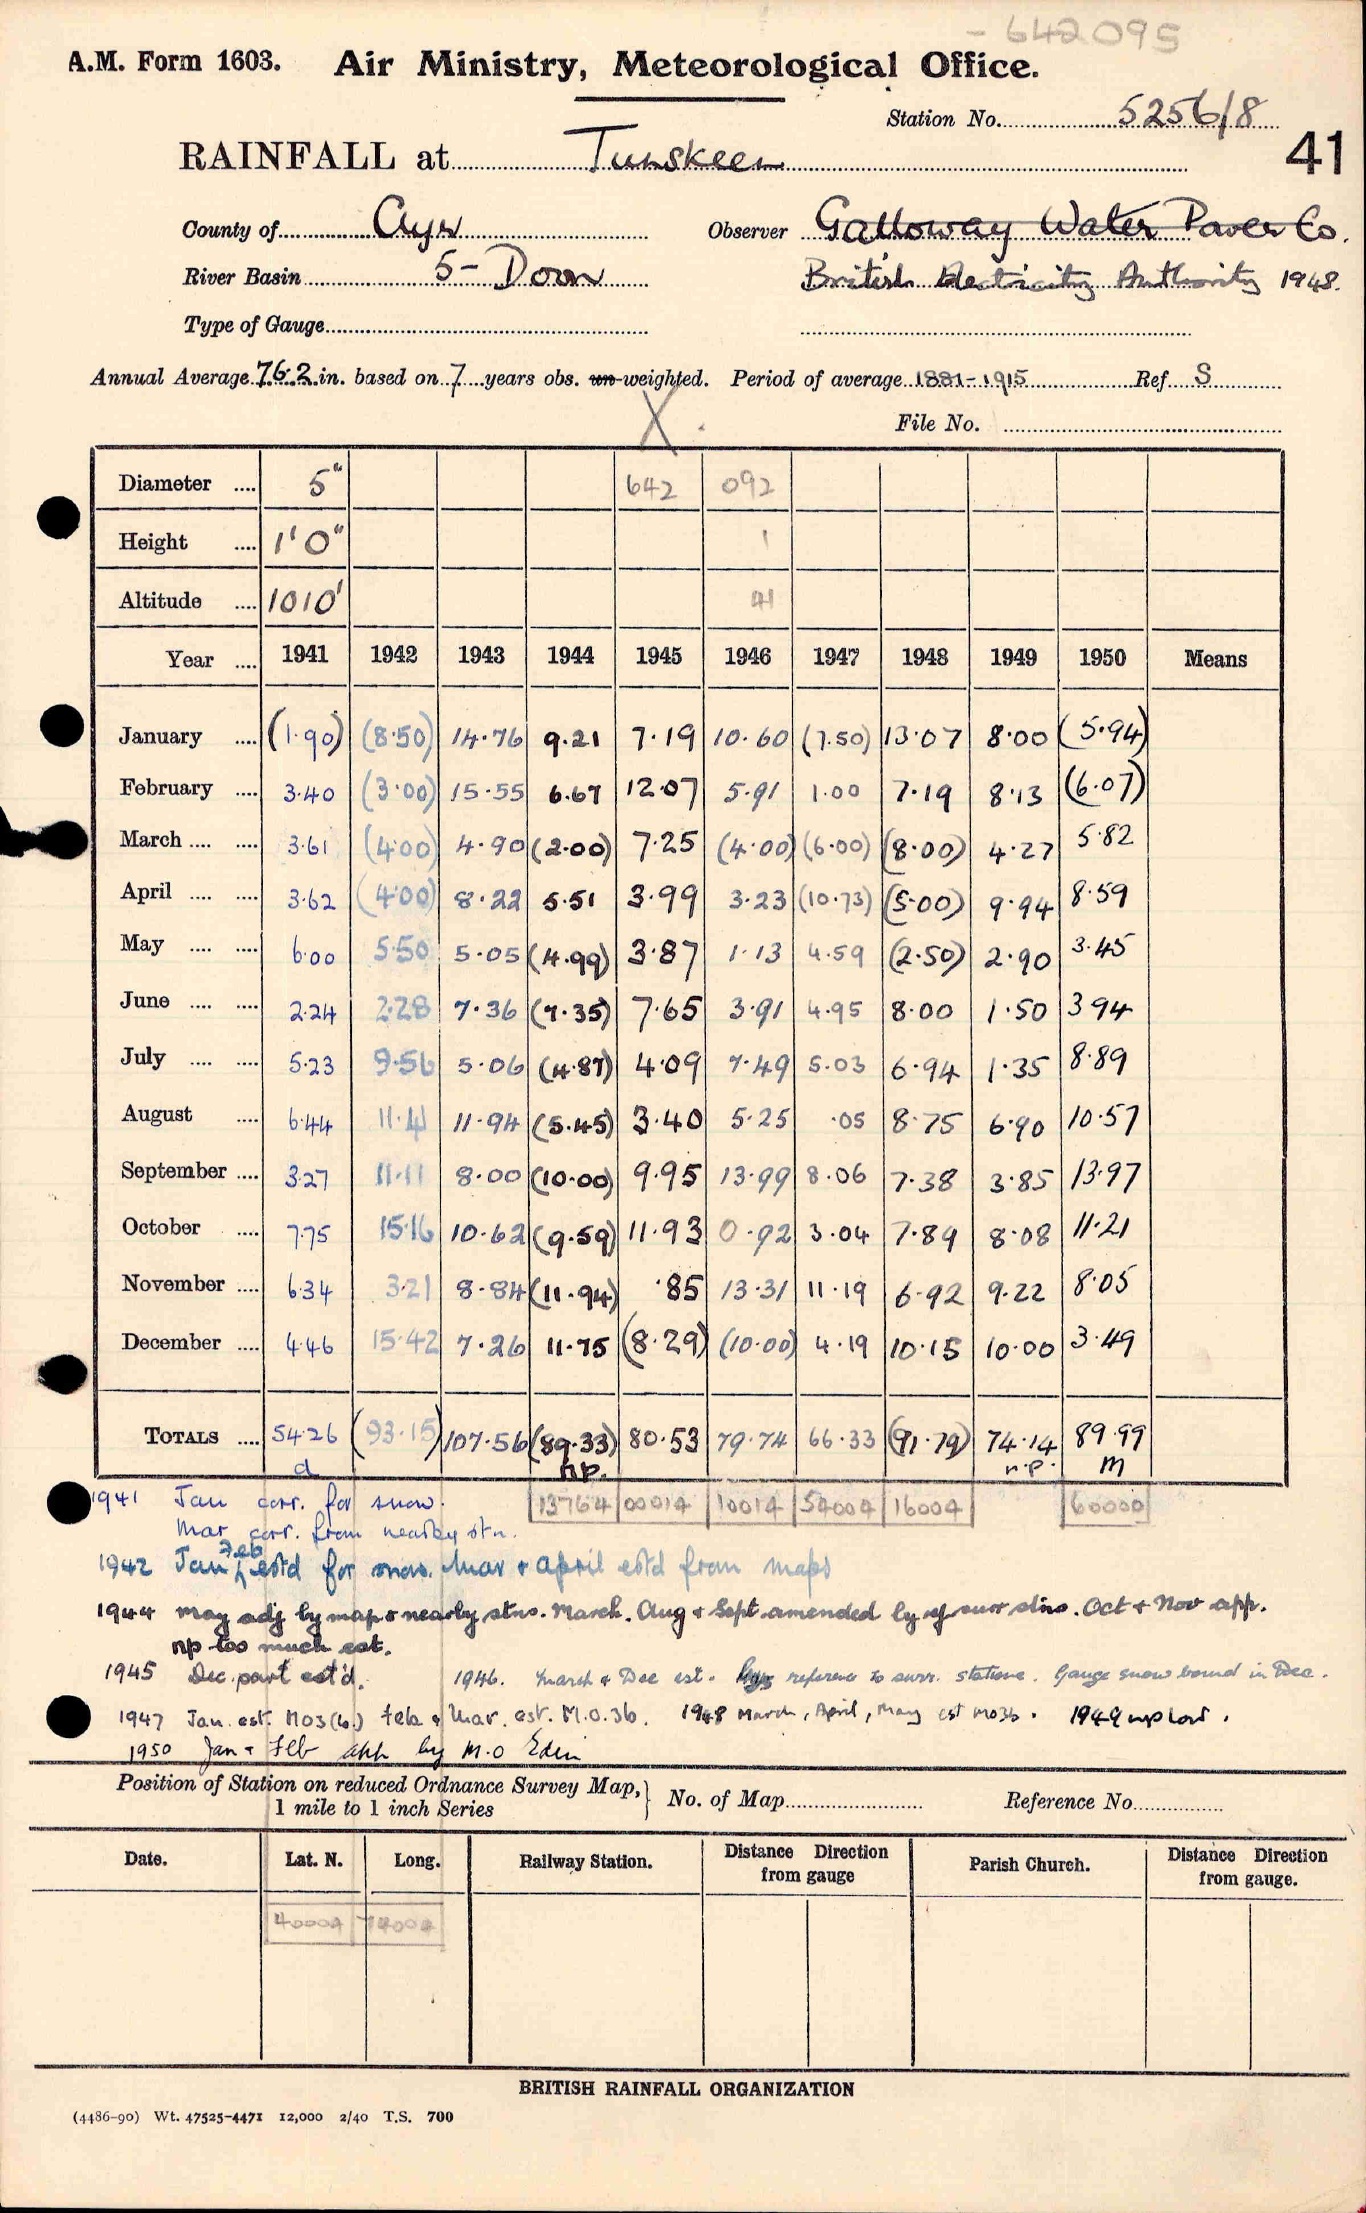 - 642095
A.M. Form 1603. Air Ministry, Meteorological Office.
Station No. 5256/8
RAINFALL at Tunskeen 41
County of Ayr Observer Galloway Water Power Co.
River Basin 5 - Doon British Electricity Authority 1948.
Type of Gauge
Annual Average 76.2 in. based on 7 years obs. un-weighted. Period of average 1881-1915 Ref S
X
File No.
Diameter .... 5" 642 092
Height .... 1'0" 1
Altitude .... 1010' 41
Year .... 1941 1942 1943 1944 1945 1946 1947 1948 1949 1950 Means
January .... (1.90) (8.50) 14.76 9.21 7.19 10.60 (7.50) 13.07 8.00 (5.94)
February .... 3.40 (3.00) 15.55 6.67 12.07 5.91 1.00 7.19 8.13 (6.07)
March .... .... 3.61 (4.00) 4.90 (2.00) 7.25 (4.00) (6.00) (8.00) 4.27 5.82
April .... .... 3.62 (4.00) 8.22 5.51 3.99 3.23 (10.73) (5.00) 9.94 8.59
May .... .... 6.00 5.50 5.05 (4.99) 3.87 1.13 4.59 (2.50) 2.90 3.45
June .... .... 2.24 2.28 7.36 (7.35) 7.65 3.91 4.95 8.00 1.50 3 94
July .... .... 5.23 9.56 5.06 (4.87) 4.09 7.49 5.03 6.94 1.35 8.89
August .... 6.44 11.41 11.94 (5.45) 3.40 5.25 .05 8.75 6.90 10.57
September .... 3.27 11.11 8.00 (10.00) 9.95 13.99 8.06 7.38 3.85 13.97
October .... 7.75 15.16 10.62 (9.59) 11.93 0.92 3.04 7.89 8.08 11.21
November .... 6.34 3.21 8.84 (11.94) .85 13.31 11.19 6.92 9.22 8.05
December .... 4.46 15.42 7.26 11.75 (8.29) (10.00) 4.19 10.15 10.00 3.49
TOTALS .... 54.26 (93.15) 107.56 (89.33) 80.53 79.74 66.33 (91.79) 74.14 89.99
d n.p. n.p. m
13764 00014 10014 54004 16004 60000
1941 Jan corr. for snow.
Mar corr. from nearby stn.
1942 Jan Feb est'd for snow. Mar + April est'd from maps
1944 May adj by map & nearby stns. March, Aug + Sept amended by ref surr stns. Oct + Nov app.
np too much est.
1945 Dec. part est'd. 1946. March & Dec est. reference to surr. stations. Gauge snow bound in Dec.
1947 Jan. est. MO3(b.) Feb & Mar. est. M.O.3b. 1948 March, April, May est MO3b. 1949 np low.
1950 Jan + Feb app by M.O Edin
Position of Station on reduced Ordnance Survey Map,} No. of Map Reference No.
1 mile to 1 inch Series
Date. Lat. N. Long. Railway Station. Distance Direction from gauge Parish Church. Distance Direction from gauge.
40004 74004
BRITISH RAINFALL ORGANIZATION
(4486-90) Wt. 47525-4471 12,000 2/40 T.S. 700